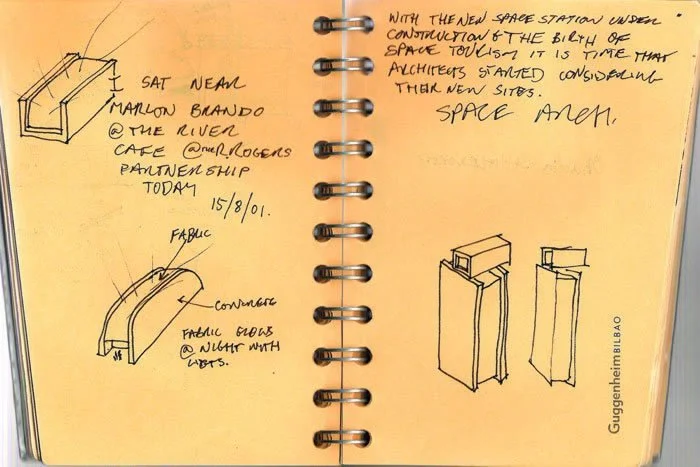 SAT NEAR
MARLON BRANDO
@ THE RIVER
CAFE @ THE R.ROGERS
PARTNERSHIP
TODAY
15/8/01.
FABRIC
CONCRETE
FABRIC GLOWS
@ NIGHT WITH
LIGHTS.
WITH THE NEW SPACE STATION UNDER
CONSTRUCTION & THE BIRTH OF
SPACE TOURISM IT IS TIME THAT
ARCHITECTS STARTED CONSIDERING
THEIR NEW SITES.
SPACE ARCH.
GuggenheimBILBAO